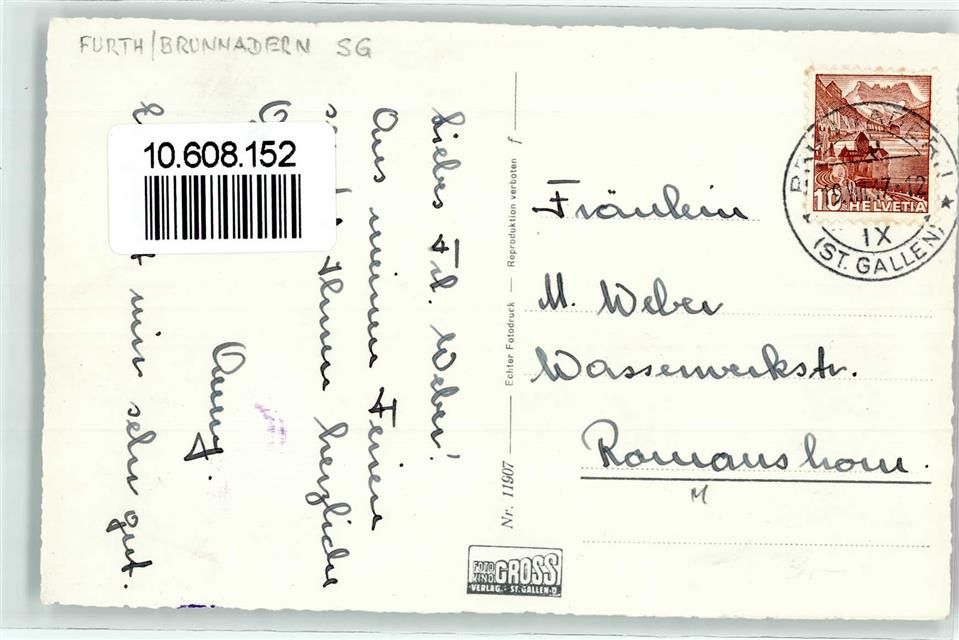 FURTH/BRUNNADERN SG
10.608.152
Liebes Frl. Weber!
Aus meinen Ferien
Ihnen herzliche
Anny.
mir sehr gut.
Nr. 11907
Echter Fotodruck — Reproduktion verboten f
FOTO KINO GROSS
VERLAG - ST. GALLEN-O
10 HELVETIA
IX
(ST. GALLEN)
Fräulein
M. Weber
Wasserwerkstr.
Romanshorn.
M